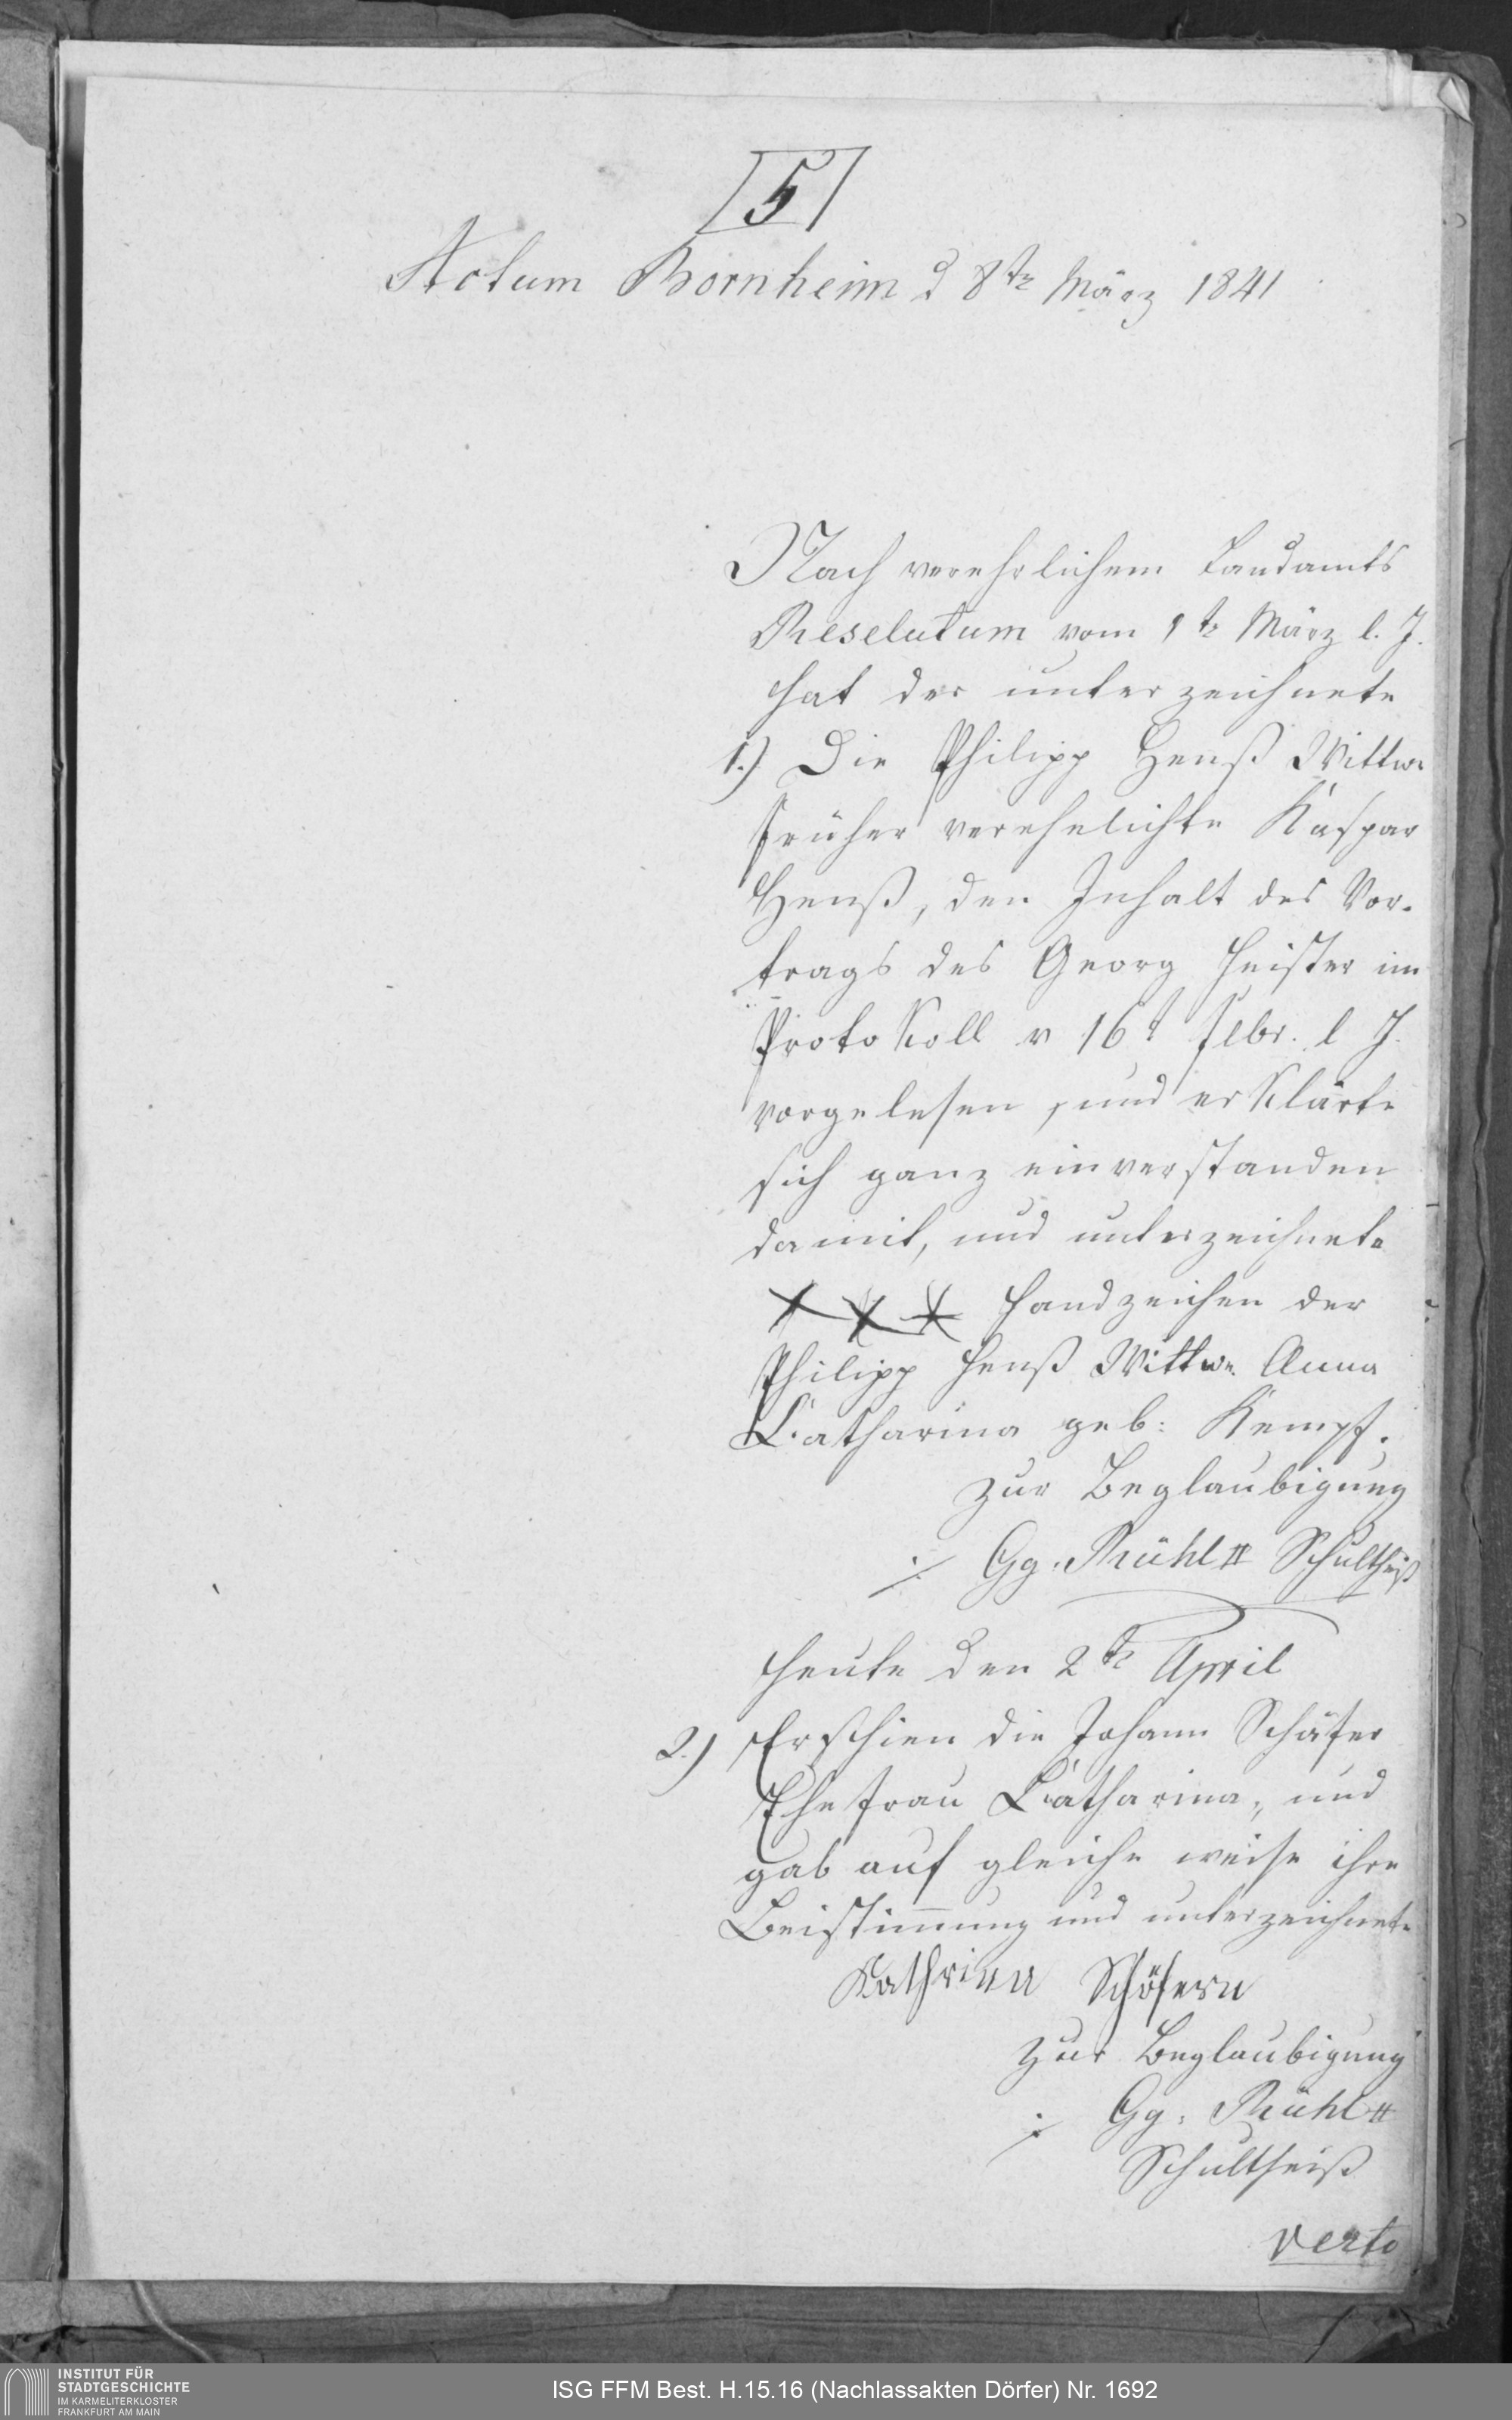 5
Actum Bornheim d 8tn März 1841
Nach verehrlichem Landamts
Reselutum vom 1tn März l. J.
hat der unterzeichnete
1.) Die Philipp Henß Wittwe
früher verehelichte Kaspar
Henß, den Inhalt des Vor-
trags des Georg Heister im
Protokoll v 16t Febr. l J.
vorgelesen, und erklärte
sich ganz einverstanden
damit, und unterzeichnete
xxx Handzeichen der
Philipp Henß Wittwe Anna
Catharina geb: Kempf.
zur Beglaubigung
Gg. Rühl II Schultheiß
Heute den 2tn April
2.) Erschien die Johann Schäfer
Ehefrau Catharina, und
gab auf gleiche weise ihre
Beistimmung und unterzeichnete
Kathrina Schöfern
zur Beglaubigung
Gg: Rühl II
Schultheiß
verto
INSTITUT FÜR
STADTGESCHICHTE
IM KARMELITERKLOSTER
FRANKFURT AM MAIN
ISG FFM Best. H.15.16 (Nachlassakten Dörfer) Nr. 1692